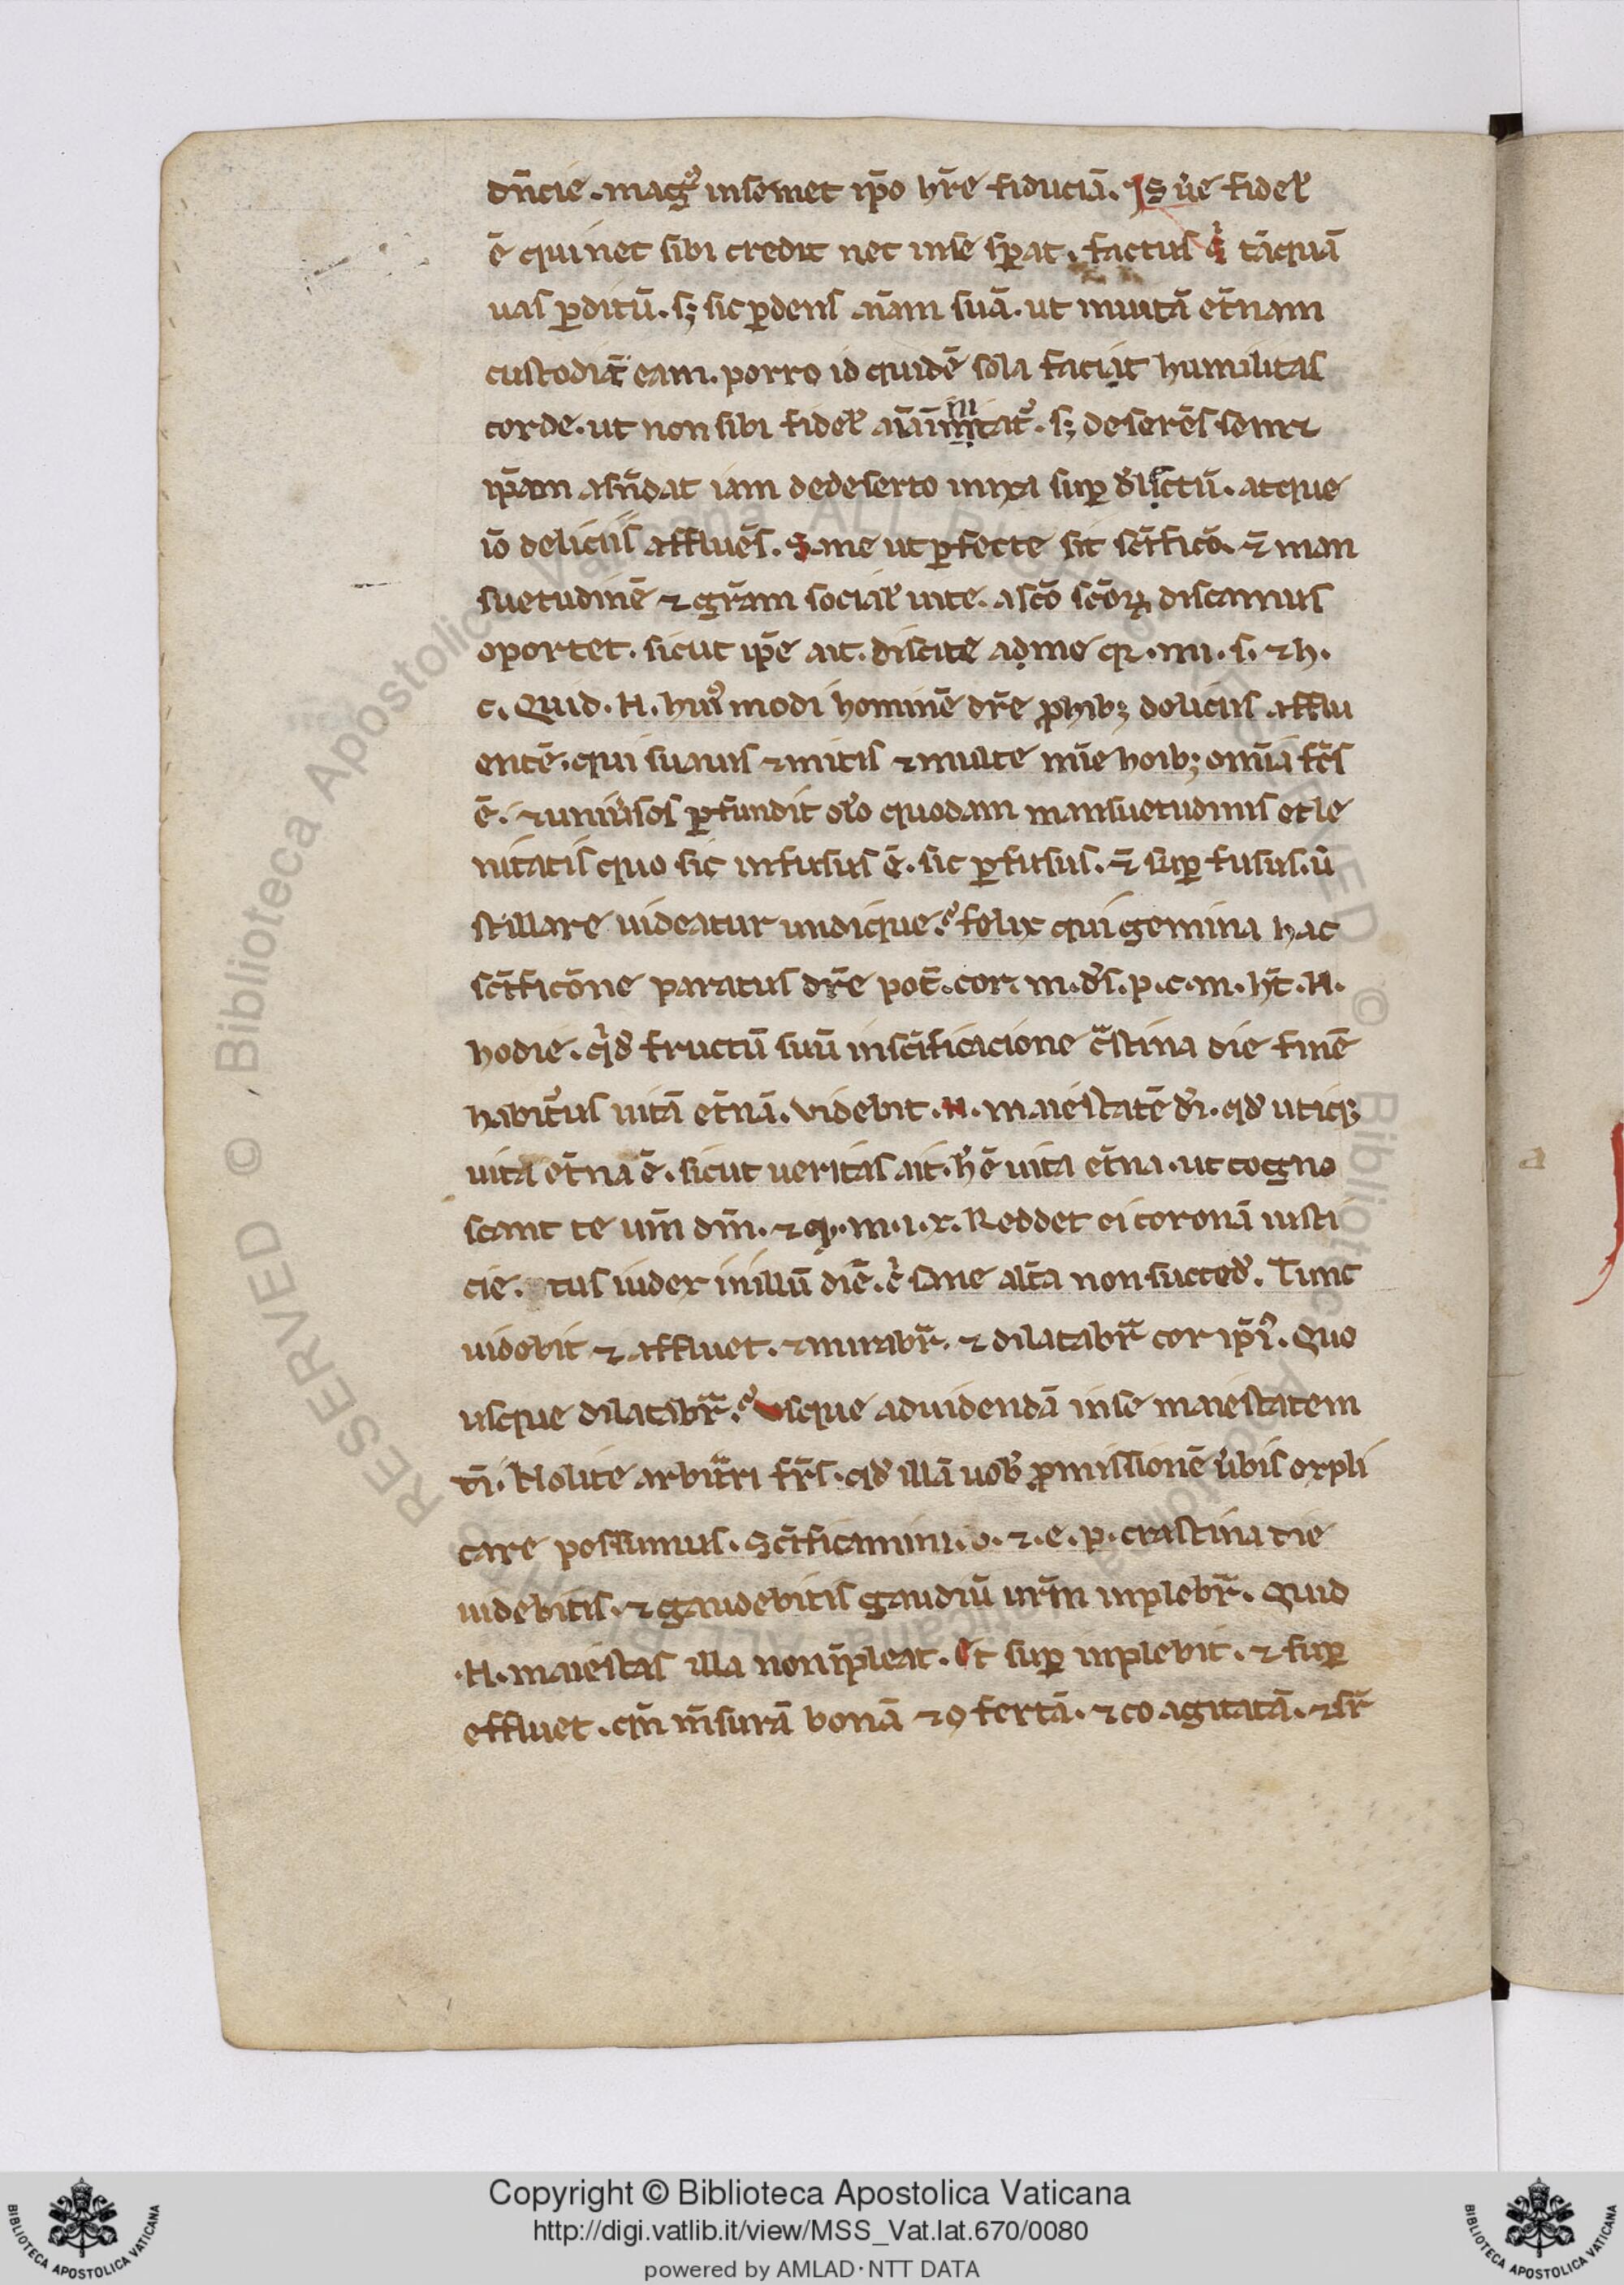 dn̄cie. mag᷒ in semet ip̄o hr̄e fiduciā. Is u̾e fidel᷒
ē qui nec sibi credit nec in se sp̄at. factus q̇ tāquā
uas p̱ditū. sꝫ sic p̱dens aīam suā. ut in uitā et̄nam
custodiat eam. porro id quidē sola faciat humilitas
corde. ut non sibi fidel᷒ aīa īnitat᷒. sꝫ deserēs semet
ip̄am asn̄dat iam de deserto inixa sup̱ dilectū. atque
iō deliciis affluēs. Sane ut p̱fecte sit sc̄ificō. ⁊̄ man
suetudinē ⁊ gr̄am social᷒ uite. a sc̄o sc̄oꝝ discamus
oportet. sicut ip̄e ait. discite a me qꝛ. mi. s. ⁊ h.
c. Quid. N. hui᷒ modi hominē dr̄e ꝓhibꝫ deliciis afflu
entē. qui suauis ⁊ mitis ⁊ multe mīe hoībꝫ omīa fc̄s
ē. ⁊ uniu̾sos p̱fundit oleo quodam mansuetudinis et le
nitatis quo sic infusus ē. sic p̱fusus. ⁊̄ sup̱ fusus. ū
stillare uideatur undique. felix qui gemina hac
sc̄ificōne paratus dr̄e pot̄. cor. m. ds̄. p. c. m. ht̄. N.
hodie. q̇d fructū suū in sc̄ificacione cᷓstina die finē
habit᷒us uitā et̄nā. Videbit. N. maiestatē dī. qd̄ utiqꝫ
uita et̄na ē. sicut ueritas ait. h̄ ē uita et̄na. ut cogno
scant te uīn dm̄. ⁊ q. m. i. x. Reddet ei coronā iusti
cie. tus iudex in illū diē. c̾ sine alt̄a non succed̄. Tunc
uidebit ⁊ affluet. ⁊ mirabr̄. ⁊ dilatabr̄ cor ip̄i᷒. Quo
usque dilatabr̄. usque ad uidendā in se maiestatem
dī. Nolite arbitᷓri fr̄s. qd̄ illā uob̄ ꝓmissionē u̾bis expli
care possumus. Sc̄ificamini. o. ⁊. e. p. crastina die
uidebitis. ⁊ gaudebitis gaudiū ur̄m inplebr̄. Quid
.N. maiestas illa non īpleat. Et sup̱ inplebit. ⁊ sup̱
effluet. cm̄ m̄surā bonā ⁊ ꝯfertā. ⁊ co agitatā. ⁊ sr̄
Copyright © Biblioteca Apostolica Vaticana
http://digi.vatlib.it/view/MSS_Vat.lat.670/0080
powered by AMLAD·NTT DATA